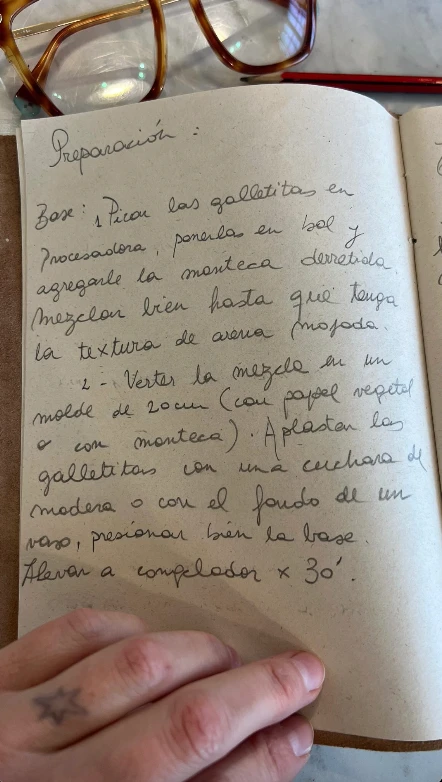 Preparación :
Base: 1 Picar las galletitas en
Procesadora, ponerlas en bol y
agregarle la manteca derretida.
Mezclar bien hasta que tenga
la textura de arena mojada.
2 - Verter la mezcla en un
molde de 20cm (con papel vegetal
o con manteca). Aplastar las
galletitas con una cuchara de
madera o con el fondo de un
vaso, presionar bien la base.
Llevar a congelador x 30'.